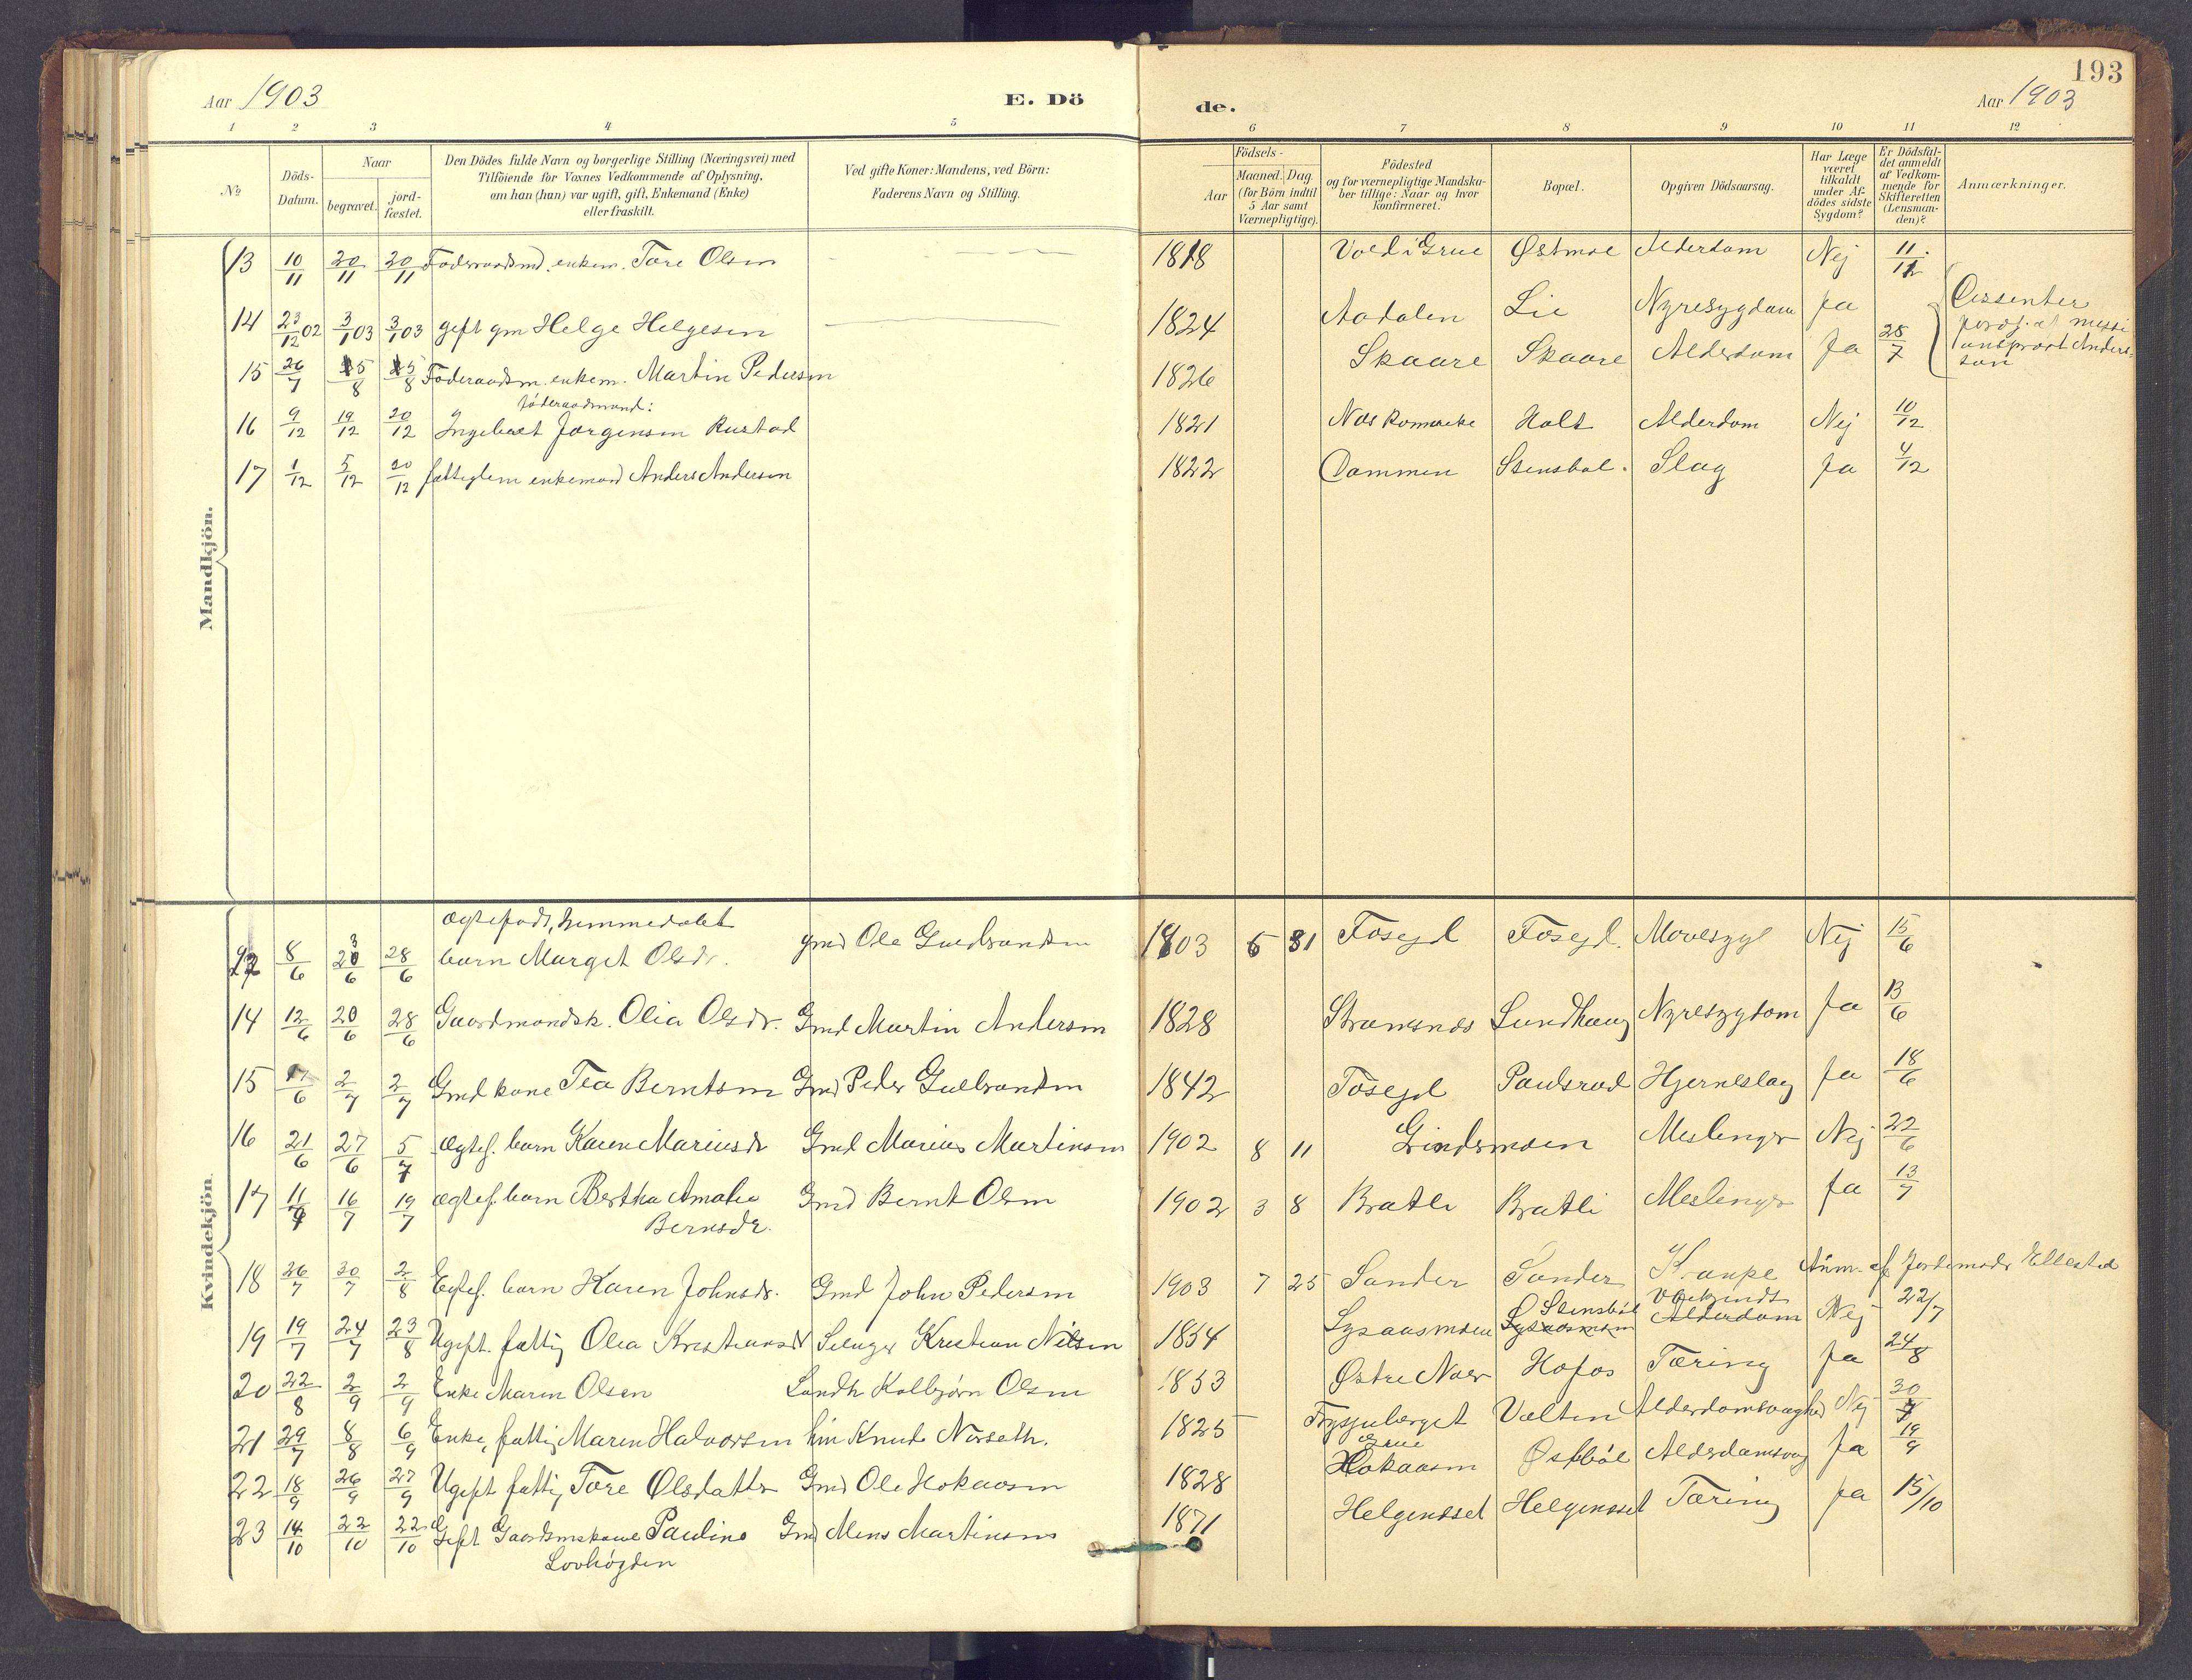 193
Aar 1903
E. Dö
de.
Aar 1903
1 2 3 4 5 6 7 8 9 10 11 12
№
Döds-
Datum.
Naar
begravet.
jord-
fæstet.
Den Dödes fulde Navn og borgerlige Stilling (Næringsvei) med
Tilföiende for Voxnes Vedkommende af Oplysning,
om han (hun) var ugift, gift, Enkemand (Enke)
eller fraskilt.
Ved gifte Koner: Mandens, ved Börn:
Faderens Navn og Stilling.
Födsels-
Aar
Maaned. Dag.
(for Börn indtil
5 Aar samt
Værnepligtige).
Födested
og for værnepligtige Mandska-
ber tillige: Naar og hvor
konfirmeret.
Bopæl.
Opgiven Dödsaarsag.
Har Læge
været
tilkaldt
under Af-
dödes sidste
Sygdom?
Er Dödsfal-
det anmeldt
af Vedkom-
mende for
Skifteretten
(Lensman-
den)?
Anmærkninger.
Mandkjön.
13 10/11 20/11 20/11 Föderaadsmd. enkem. Tore Olsen 1818 Vold i Grue Østmoe Alderdom Nej 11/11
14 23/12 02 3/1 03 3/1 03 gift gm Helge Helgesen 1824 Aadalen Lie Nyresygdom Ja
Dissenter
15 26/7 5/8 5/8 Föderaadsm. enkem. Martin Pedersen 1826 Skaare Skaare Alderdom Ja 28/7
föderaadsmand:
16 9/12 19/12 20/12 Ingebret Jørgensen Rustad 1821 Næs Romerike Holt Alderdom Nej 10/12
17 1/12 5/12 20/12 fattiglem enkemand Anders Andersen 1822 Dammen Stensbøl. Slag Ja 4/12
Kvindekjön.
ægtefødt, hjemmedøbt
8/6 28/6 barn Marget Olsdr. gmd Ole Gulbrandsen 1903 Fosejd Fosejd. Mavesyge Nej 15/6
14 12/6 20/6 28/6 Gaardmandsk. Olia Olsdr. Gmd Martin Andersen 1828 Strømsnæs Sundhaug Nyresygdom Ja 13/6
15 2/7 2/7 Gmd kone Tea Berntsen Gmd Peder Gulbrandsen 1842 Fosejd Paulsrud Hjerneslag Ja 18/6
16 21/6 27/6 5/7 Ægtef. barn Karen Mariusdr Gmd Marius Martinsen 1902 8 11 Grindermoen Meslinger Nej 22/6
17 11/7 16/7 19/7 ægtef. barn Bertha Amalie Gmd Bernt Olsen 1902 3 8 Bratli Bratli Meslinger Ja 13/7
Bernsdr.
18 26/7 30/7 2/8 Egtef. barn Karen Johnsdr. Gmd John Pedersen 1903 7 25 Sander Sander Krampe Anm. af Jordemoder Ellested
Stensbøl
19 19/7 24/7 23/8 Ugift. fattig Olea Kristiansdr Selvejer Kristian Nilsen 1834 Lysaasmoen Lysaasmoen Alderdom Nej 22/7
20 22/8 2/9 2/9 Enke Maren Olsen Landh Kolbjørn Olsen 1833 Østre Noer Hofos Tæring Ja 24/8
21 29/7 8/8 6/9 Enke, fattig Maren Halvorsen Knud Nørseth. 1825 Frysjuberget Velten Alderdomsvaghed Nej 30/7
Grue
22 18/9 26/9 27/9 Ugift fattig Tore Olsdatter Gmd Ole Hokaasen 1828 Hokaasen Østbøl Alderdomsvag Ja 19/9
23 14/10 22/10 22/10 Gift Gaardmskone Pauline Gmd Mens Martinsen 1871 Helgenset Helgenset Tæring Ja 15/10
Lovhögden